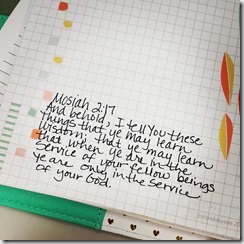 Mosiah 2:17
And behold, I tell you these
things that ye may learn
wisdom; that ye may learn
that when ye are in the
service of your fellow beings
ye are only in the service
of your God.